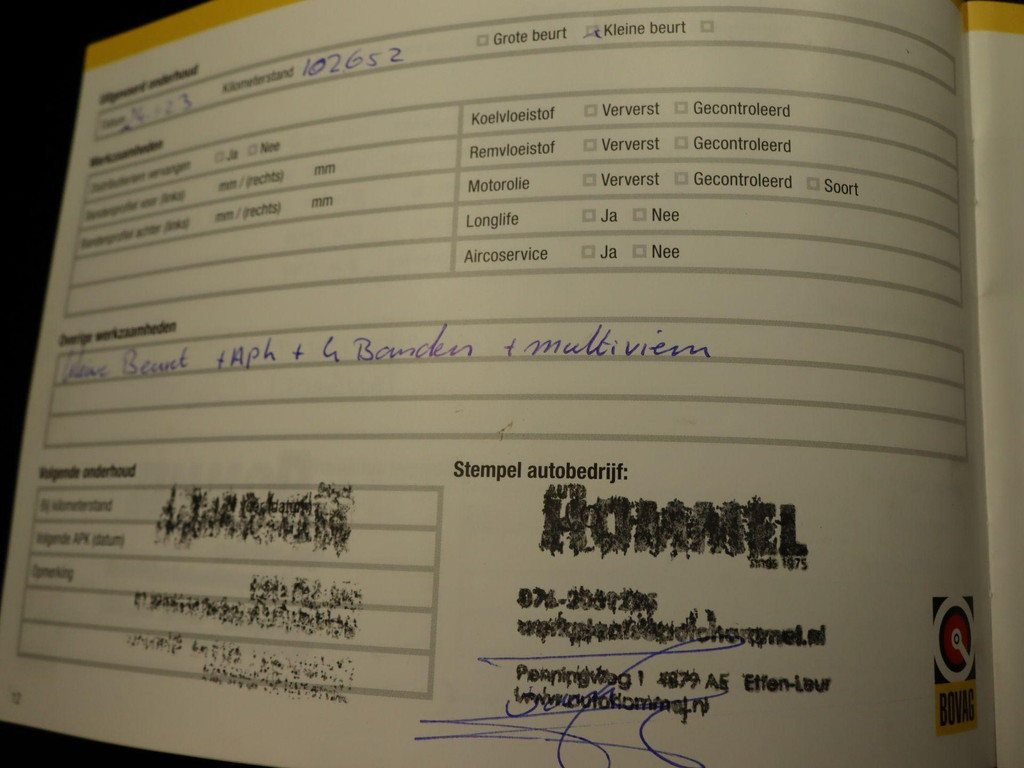 Uitgevoerd onderhoud
Datum Kilometerstand 102652 Grote beurt Kleine beurt
Werkzaamheden
Distributieriem vervangen Ja Nee
Bandenprofiel voor (links) mm / (rechts) mm
Bandenprofiel achter (links) mm / (rechts) mm
Koelvloeistof Ververst Gecontroleerd
Remvloeistof Ververst Gecontroleerd
Motorolie Ververst Gecontroleerd Soort
Longlife Ja Nee
Aircoservice Ja Nee
Overige werkzaamheden
Beurt + Apk + 4 Banden + multiriem
Volgende onderhoud
Bij kilometerstand
Volgende APK (datum)
Opmerking
12
Stempel autobedrijf:
AUTO
HOMMEL
sinds 1975
werkplaats@autohommel.nl
Penningweg 1 4879 AE Etten-Leur
www.autohommel.nl
BOVAG